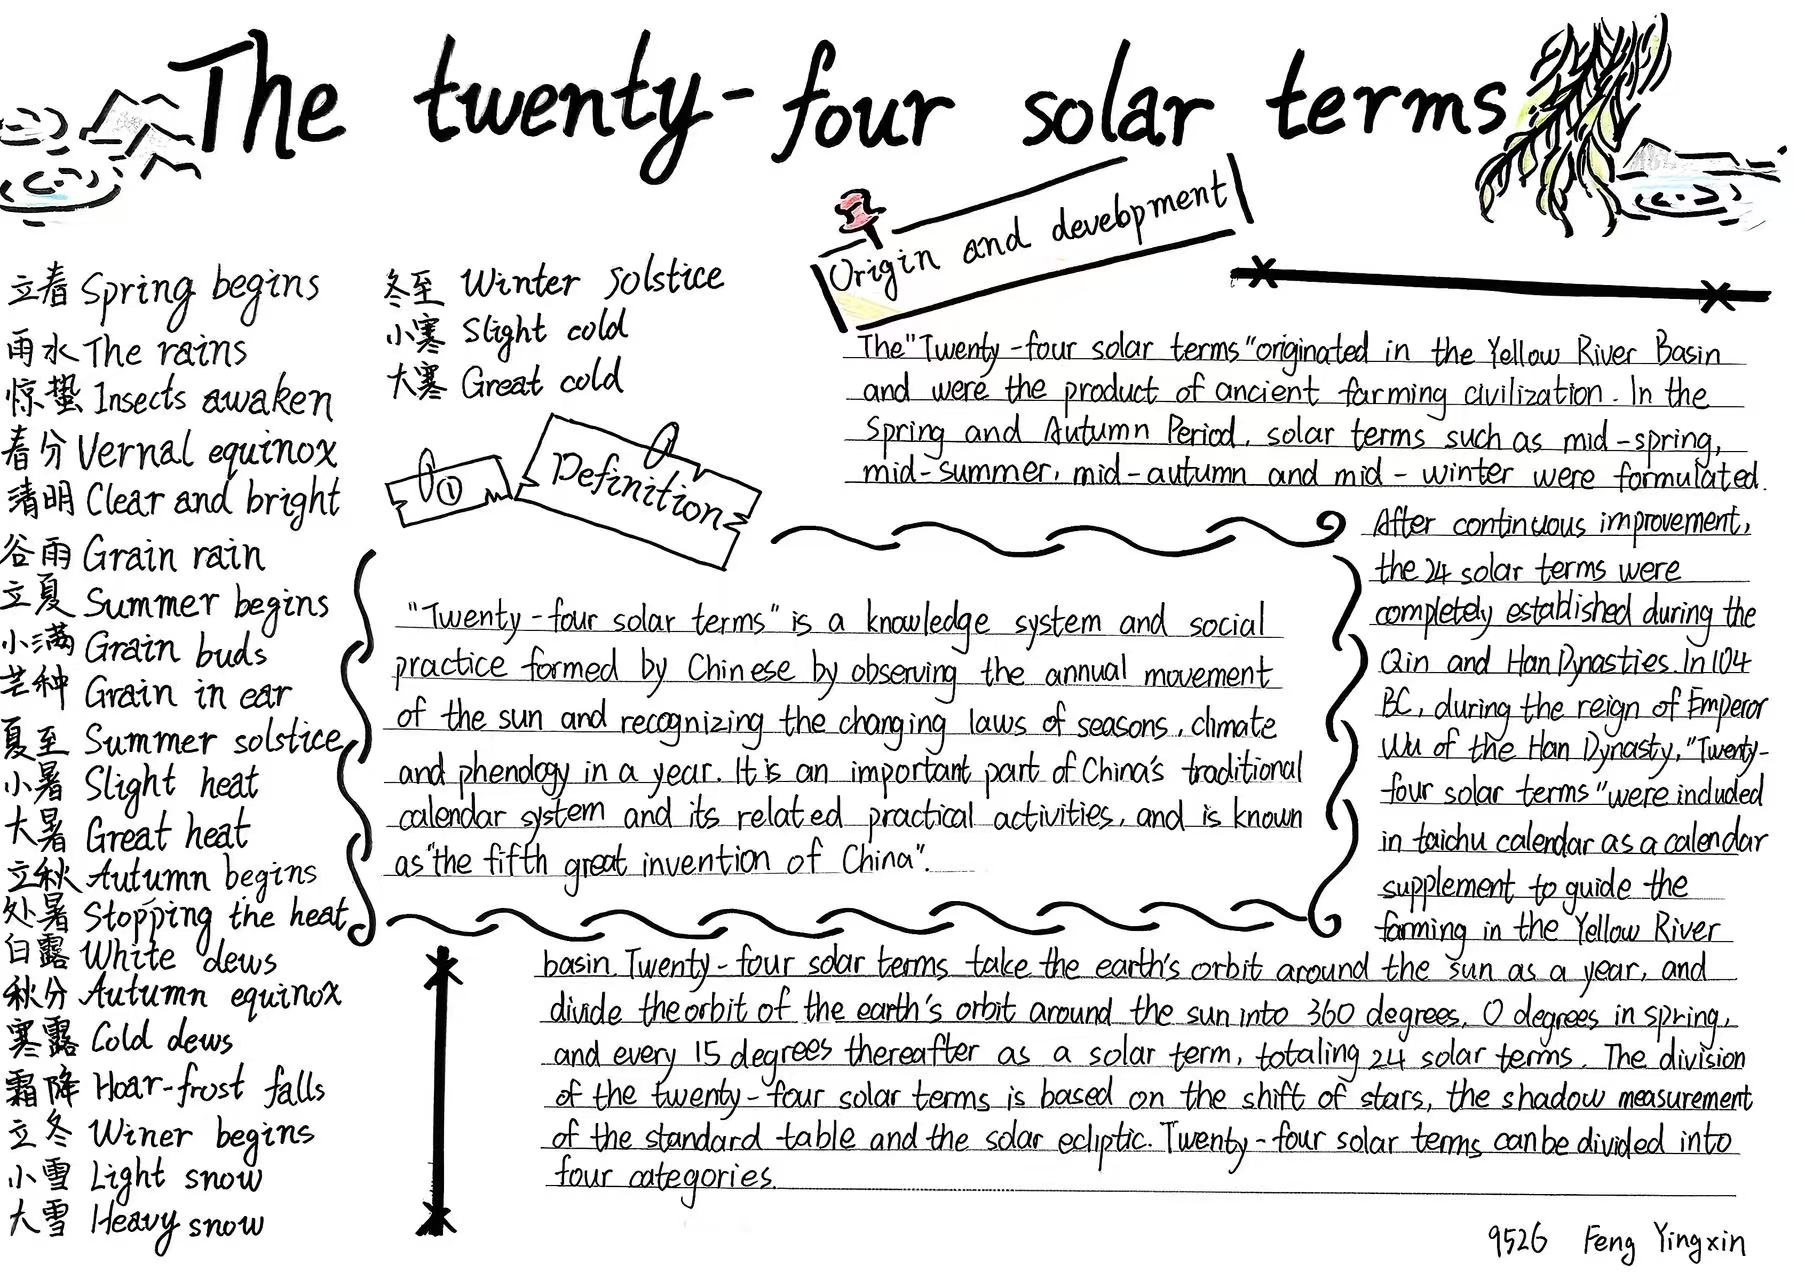 The twenty-four solar terms
立春 Spring begins
雨水 The rains
惊蛰 Insects awaken
春分 Vernal equinox
清明 Clear and bright
谷雨 Grain rain
立夏 Summer begins
小满 Grain buds
芒种 Grain in ear
夏至 Summer solstice
小暑 Slight heat
大暑 Great heat
立秋 Autumn begins
处暑 Stopping the heat
白露 White dews
秋分 Autumn equinox
寒露 Cold dews
霜降 Hoar-frost falls
立冬 Winer begins
小雪 Light snow
大雪 Heavy snow
冬至 Winter solstice
小寒 Slight cold
大寒 Great cold
① Definition
"Twenty-four solar terms" is a knowledge system and social
practice formed by Chinese by observing the annual movement
of the sun and recognizing the changing laws of seasons, climate
and phendogy in a year. It is an important part of China's traditional
calendar system and its related practical activities, and is known
as "the fifth great invention of China".
Origin and development
The "Twenty-four solar terms" originated in the Yellow River Basin
and were the product of ancient farming civilization. In the
Spring and Autumn Period, solar terms such as mid-spring,
mid-summer, mid-autumn and mid-winter were formulated.
After continuous improvement,
the 24 solar terms were
completely established during the
Qin and Han Dynasties. In 104
BC, during the reign of Emperor
Wu of the Han Dynasty, "Twenty-
four solar terms" were included
in taichu calendar as a calendar
supplement to guide the
farming in the Yellow River
basin. Twenty-four solar terms take the earth's orbit around the sun as a year, and
divide the orbit of the earth's orbit around the sun into 360 degrees, 0 degrees in spring,
and every 15 degrees thereafter as a solar term, totaling 24 solar terms. The division
of the twenty-four solar terms is based on the shift of stars, the shadow measurement
of the standard table and the solar ecliptic. Twenty-four solar terms can be divided into
four categories.
9526 Feng Yingxin